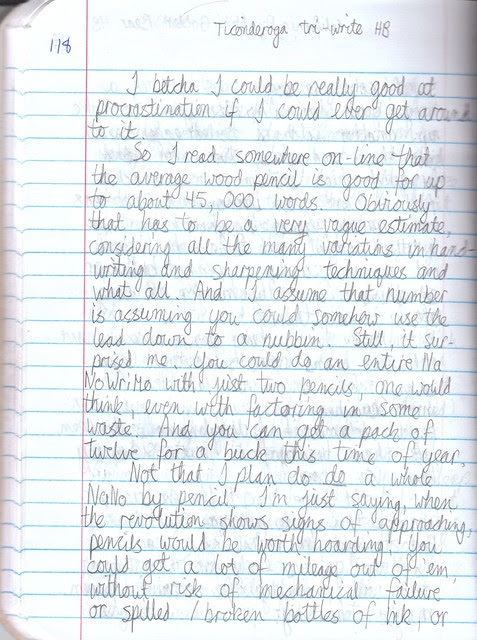 Ticonderoga tri-write HB
118
I betcha I could be really good at
procrastination if I could ever get around
to it.
So I read somewhere on-line that
the average wood pencil is good for up
to about 45,000 words. Obviously
that has to be a very vague estimate,
considering all the many variations in hand-
writing and sharpening techniques and
what all. And I assume that number
is assuming you could somehow use the
lead down to a nubbin. Still, it sur-
prised me. You could do an entire Na
NoWriMo with just two pencils, one would
think, even with factoring in some
waste. And you can get a pack of
twelve for a buck this time of year.
Not that I plan do do a whole
NaNo by pencil. I'm just saying, when
the revolution shows signs of approaching,
pencils would be worth hoarding. You
could get a lot of mileage out of 'em,
without risk of mechanical failure
or spilled / broken bottles of ink, or